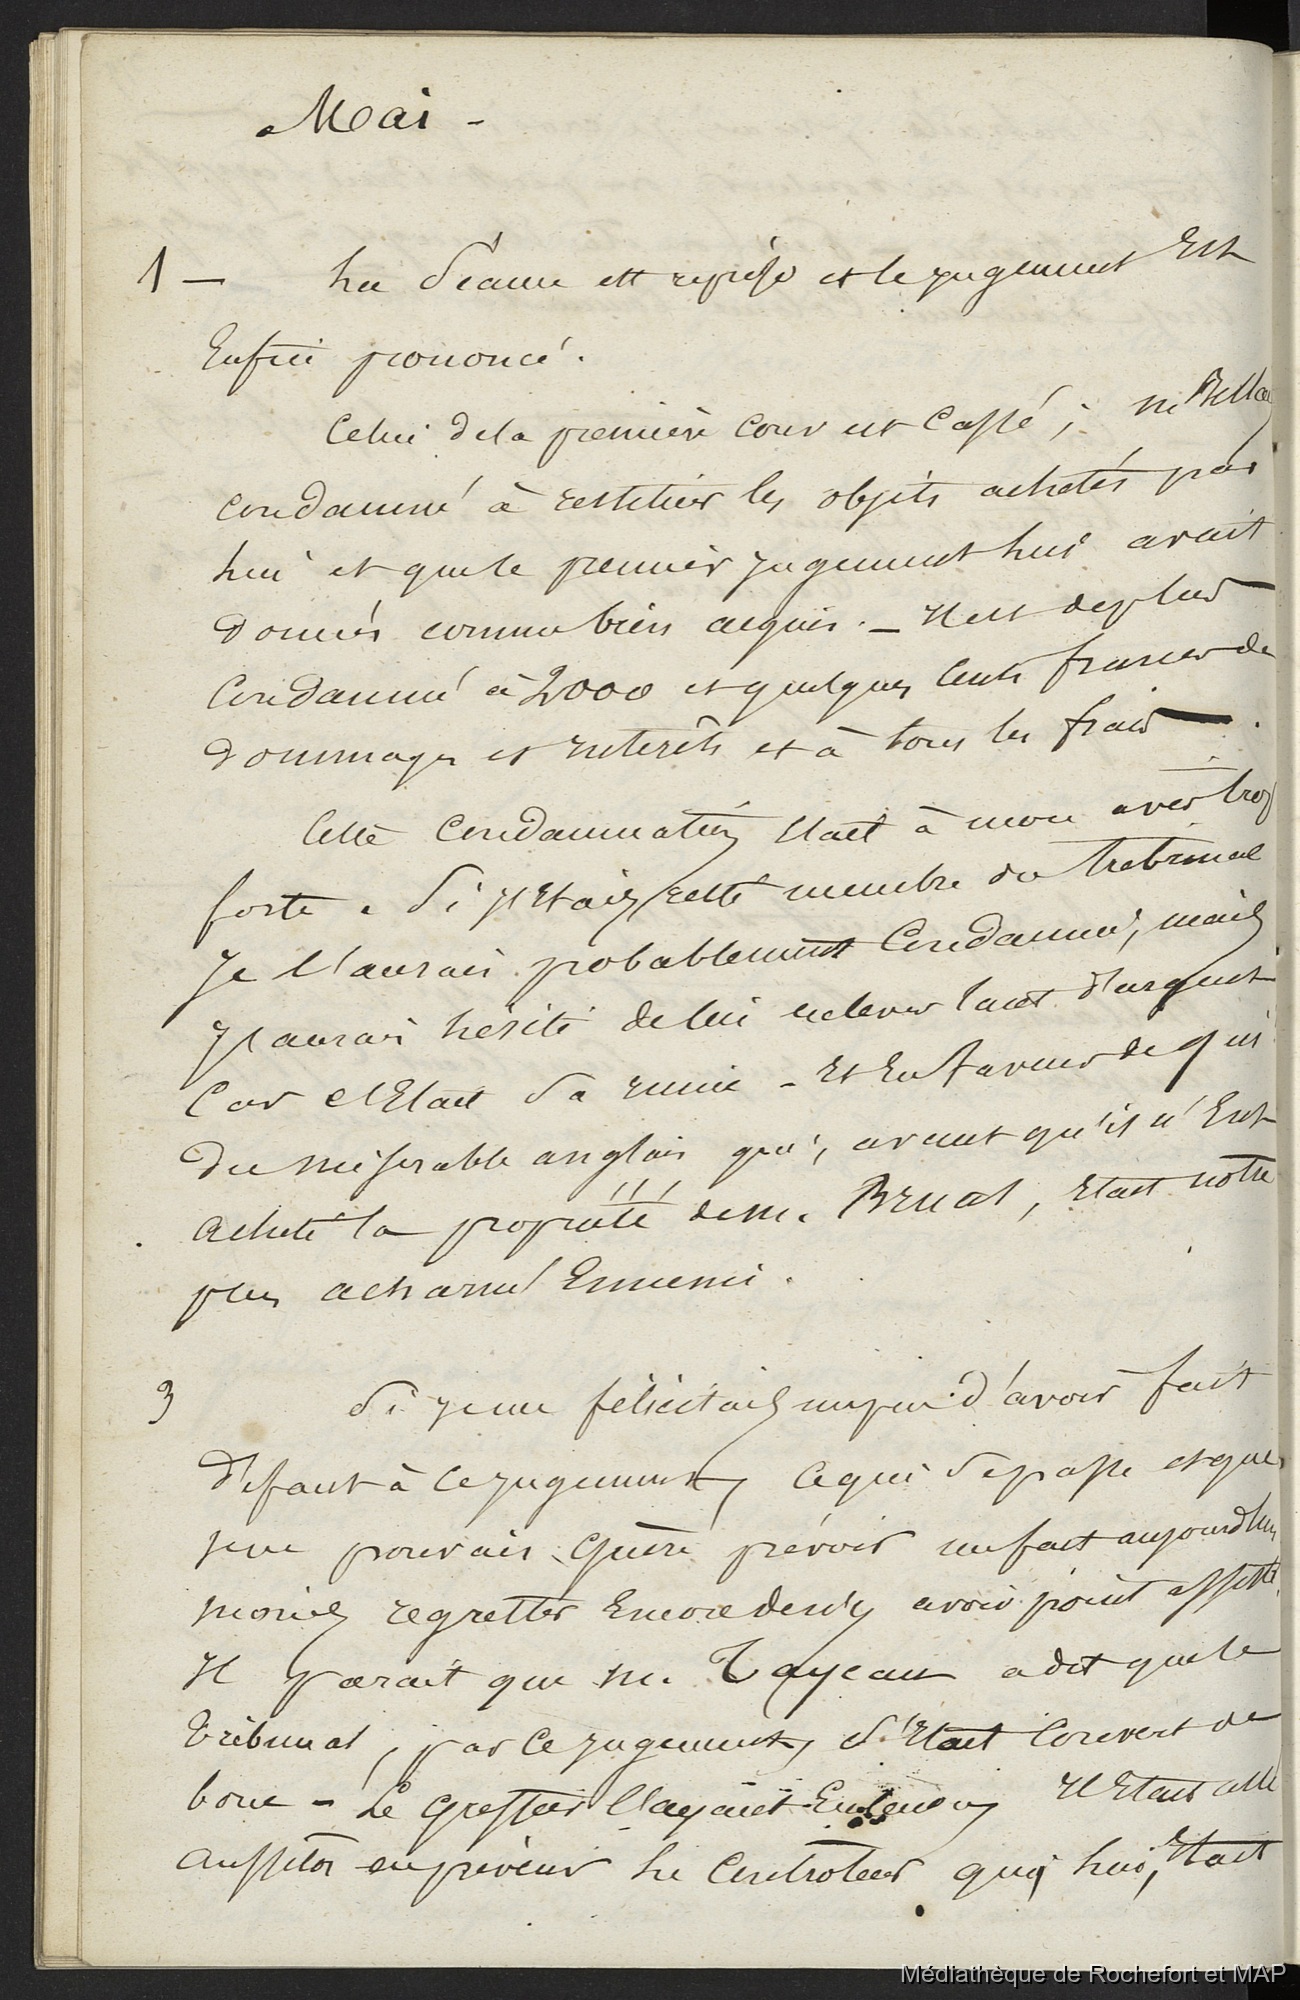 Mai -
1 - La Séance est reprise et le jugement Est
Enfin prononcé.
Celui de la première Cour est Cassé ; M Bella
condamné à restituer les objets achetés par
lui et que le premier jugement lui avait
donnés comme bien acquis. - Il est de plus
Condamné à 2000 et quelques Cents francs de
dommages et intérêts et à tous les frais - .
Cette Condamnation était à mon avis trop
forte. Si j'étais resté membre du tribunal
Je l'aurais probablement Condamné, mais
j'aurais hésité de lui enlever tant d'argent
Car C'Etait Sa ruine - Et En faveur de qui
du misérable anglais qui, avant qu'il n'Eut
acheté la propriété de M. Bruat, Etait notre
plus acharné Ennemi.
3 Si je me félicitais d'avoir fait
défaut à ce jugement, ce qui Se passe et que
je ne pouvais guère prévoir me fait aujourd'hui
moins regretter Encore de n'y avoir point assisté.
Il parait que M. Tayeau a dit que le
tribunal, par ce jugement, S'Etait Couvert de
boue - Le greffier l'ayant Entendu, Il Etait allé
aussitôt en prévenir le Contrôleur qui, lui, Etait
Médiathèque de Rochefort et MAP